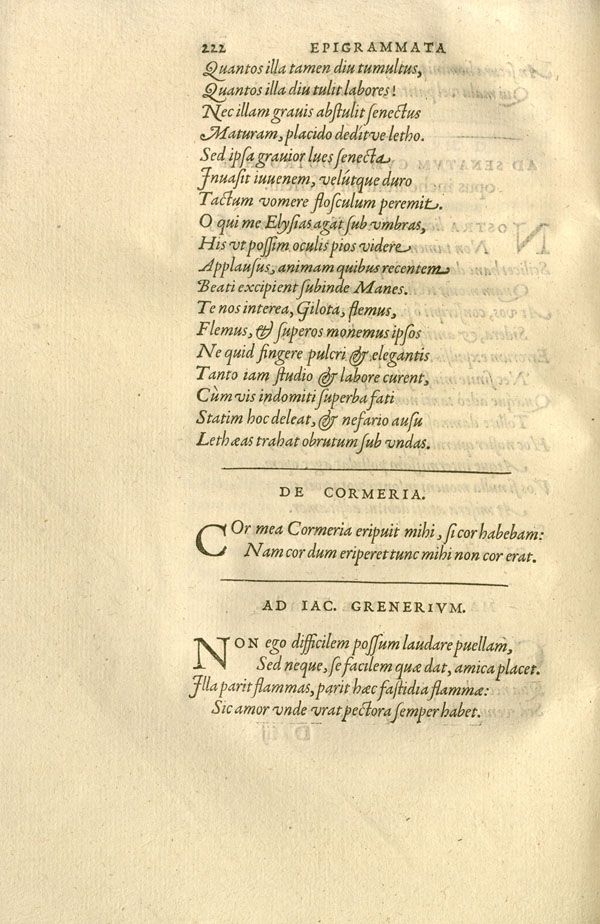 222 EPIGRAMMATA
Quantos illa tamen diu tumultus,
Quantos illa diu tulit labores!
Nec illam grauis abſtulit ſenectus
Maturam, placido deditve letho.
Sed ipſa grauior lues ſenecta
Inuaſit iuuenem, velútque duro
Tactum vomere floſculum peremit.
O qui me Elyſias agat ſub vmbras,
His vt poſſim oculis pios videre
Applauſus, animam quibus recentem
Beati excipient ſubinde Manes.
Te nos interea, Gilota, flemus,
Flemus, & ſuperos monemus ipſos
Ne quid fingere pulcri & elegantis
Tanto iam ſtudio & labore curent,
Cùm vis indomiti ſuperba fati
Statim hoc deleat, & nefario auſu
Lethæas trahat obrutum ſub vndas.
DE CORMERIA.
COr mea Cormeria eripuit mihi, ſi cor habebam:
Nam cor dum eriperet tunc mihi non cor erat.
AD IAC. GRENERIVM.
NON ego difficilem poſſum laudare puellam,
Sed neque, ſe facilem quæ dat, amica placet.
Illa parit flammas, parit hæc faſtidia flammæ:
Sic amor vnde vrat pectora ſemper habet.